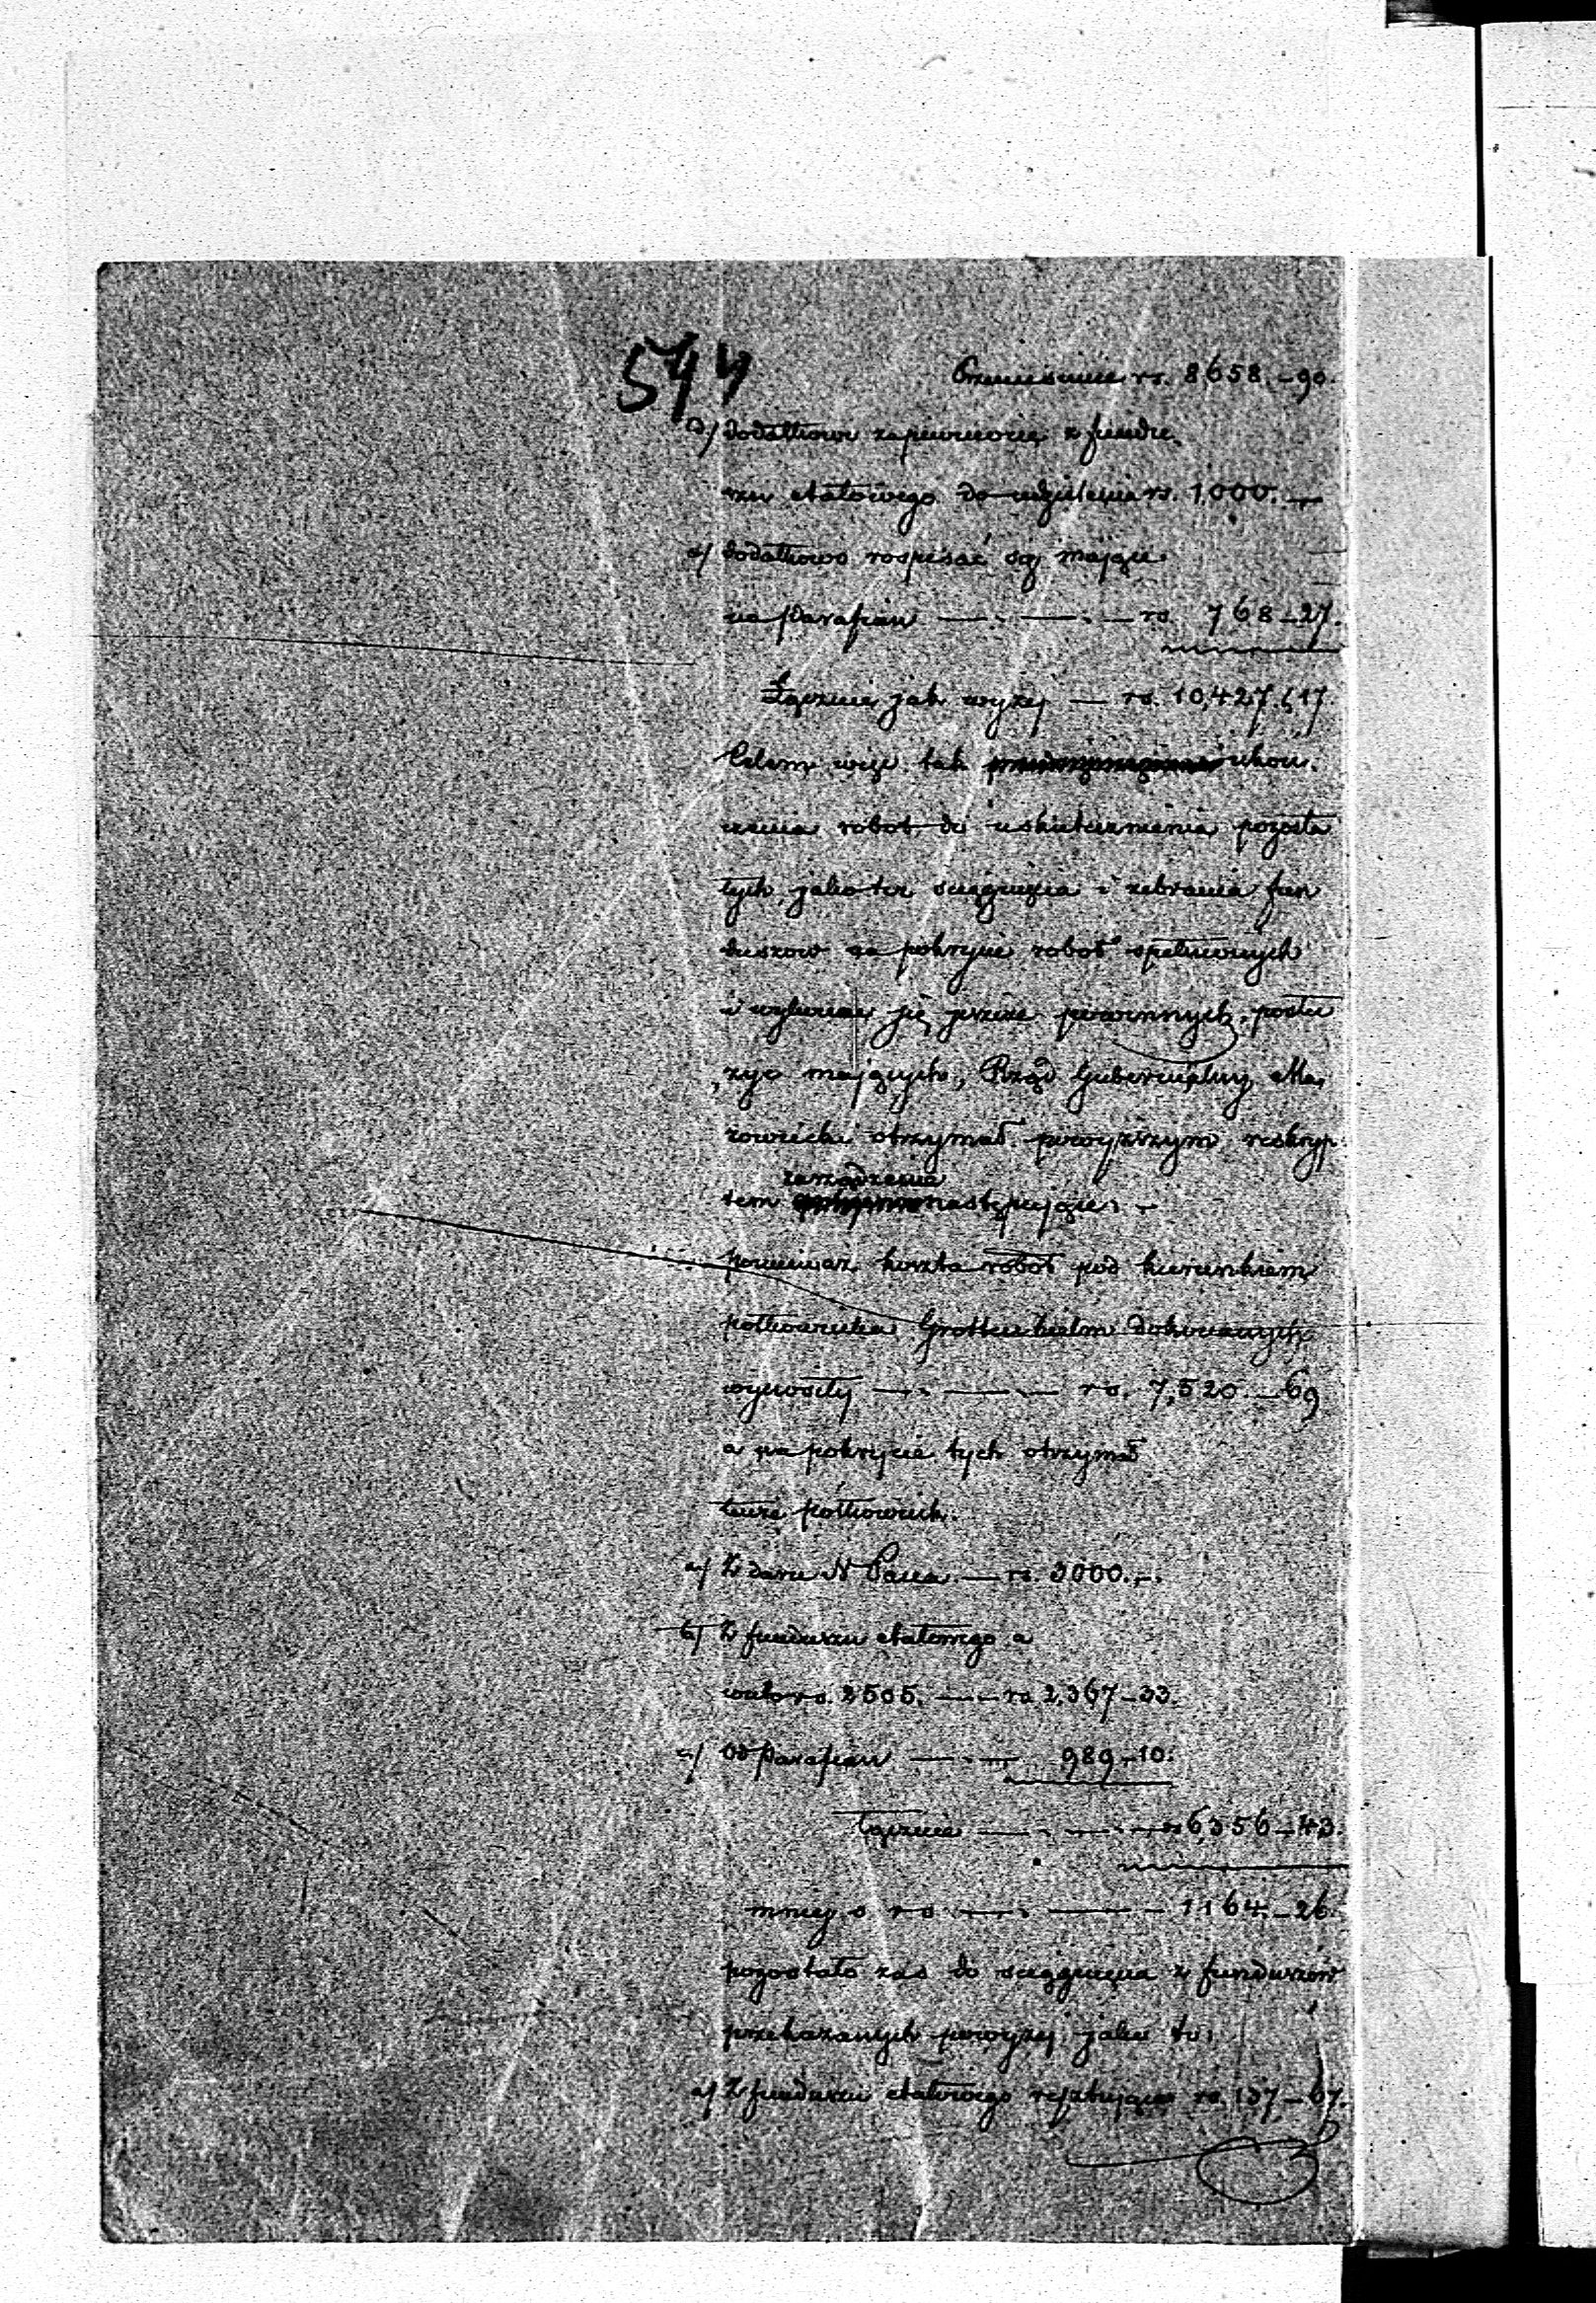 544
Przeniesienie rs. 8658.-90.
d/ dodatkowo zapewnione z fundu-
szu etatowego do udzielenia rs. 1,000.—
e/ dodatkowo rospisać się mające
na Parafian — rs. 768-27.
Łącznie jak wyżej — rs. 10,427.17.
Celem więc tak ukoń-
czenia robot do uskutecznienia pozosta
łych, jako też ściągnięcia i zebrania fun
duszow na pokrycie robot spełnionych
i jeszcze powinnych, posłu
żyć mających, Rząd Gubernialny Ma-
zowiecki otrzymał powyższym reskryp-
tem zarządzenia następujące. —
ponieważ koszta robot pod kierunkiem
półkownika dokonanych
wynosiły — rs. 7,520.—69
a na pokrycie tych otrzymał
tenże półkownik.
a/ Z daru Paca — rs. 3000.—.
b/ Z funduszu etatowego a
rs. 2505. — rs 2,367-33.
c/ Od Parafian — 989-10.
Łącznie — rs 6,356-43.
mniej o rs — 1164.-26.
pozostało zas do sciągnięcia z funduszow
przekazanych powyzej jako to,
a/ Z funduszu etatowego rs. 137-67.